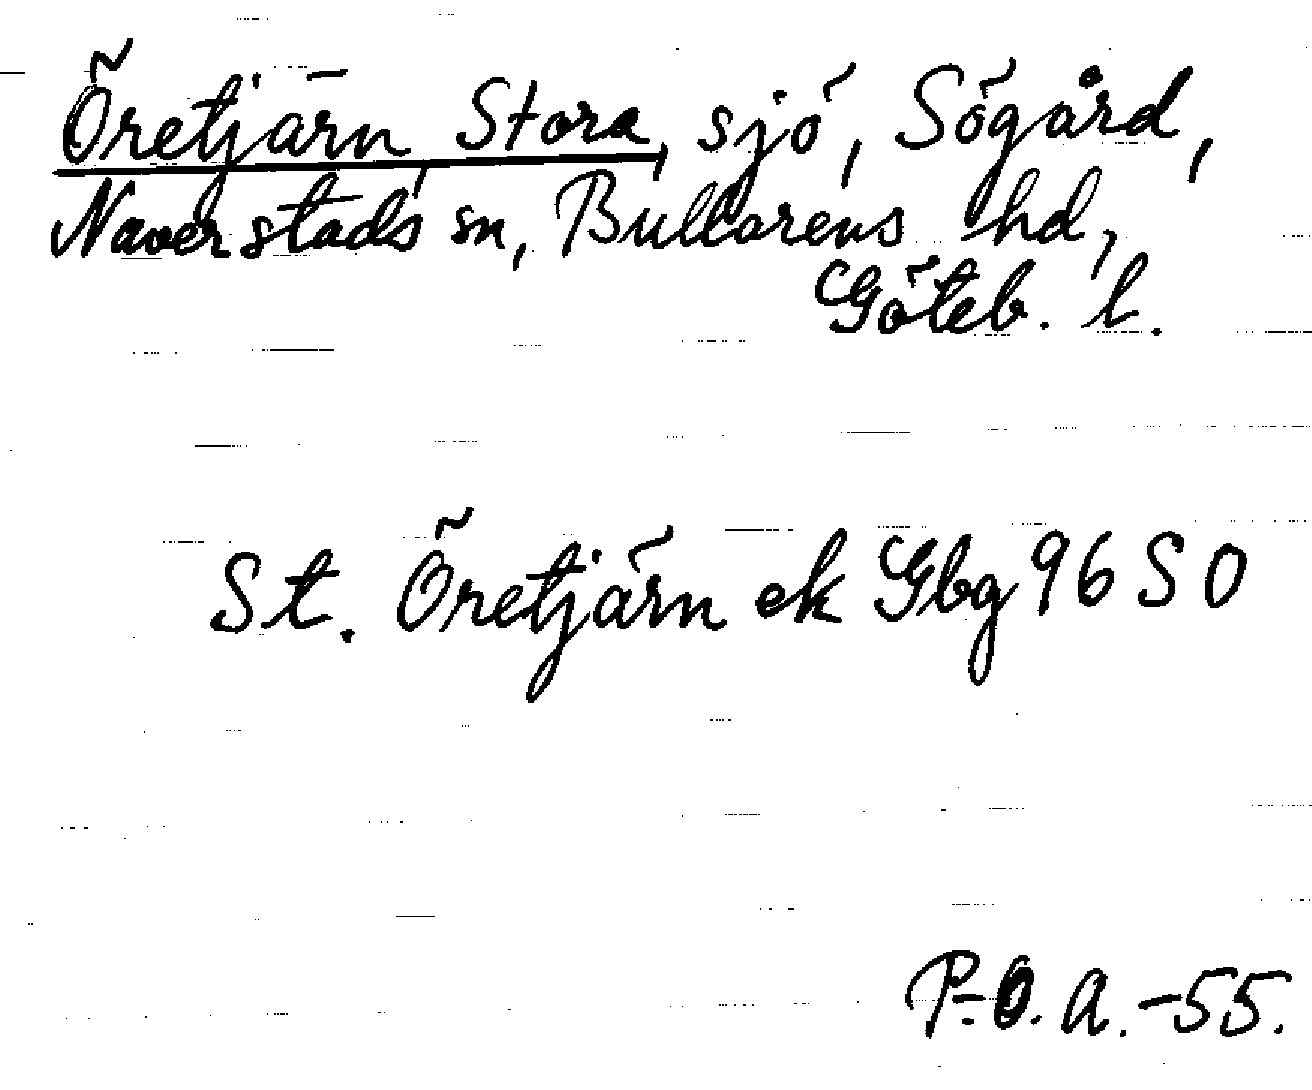 Öretjärn Stora, sjö, Sögård,
Naverstads sn, Bullarens hd,
Göteb. l.
St. Öretjärn ek Gbg 96 SO
P.-O. A. -55.